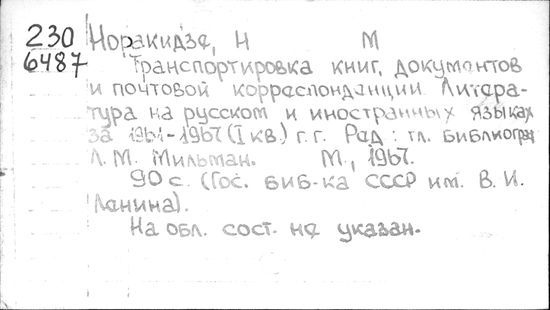 230
6487
Норакидзе, Н М
Транспортировка книг, документов
и почтовой корреспонденции. Литера-
тура на русском и иностранных языках
за 1961-1967 (I кв.) г.г. Ред: гл. библиограф
Л. М. Мильман. М., 1967.
90 с. (Гос. биб-ка СССР им. В. И.
Ленина).
На обл. сост. не указан.